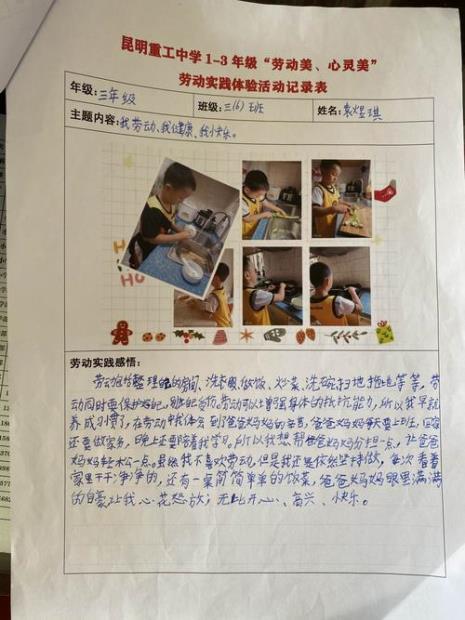 昆明重工中学1-3年级“劳动美、心灵美”
劳动实践体验活动记录表
年级：三年级
班级：三(6)班
姓名：袁煜琪
主题内容：我劳动、我健康、我快乐。
劳动实践感悟：
劳动包括整理的房间、洗衣服、做饭、炒菜、洗碗扫地拖地等等，劳
动同时要保护好自己，别把自己伤。劳动可以增强身体的抵抗能力，所以我早就
养成习惯了，在劳动中我体会到爸爸妈妈的辛苦，爸爸妈妈每天要上班，回家
还要做家务，晚上还要陪着我学习。所以我想帮爸爸妈妈分担一点，让爸爸
妈妈轻松一点。虽然我不喜欢劳动，但是我还是依然坚持做，每次看着
家里干干净净的，还有一桌简简单单的饭菜，爸爸妈妈眼里满满
的自豪让我心花怒放，无比开心、高兴、快乐。